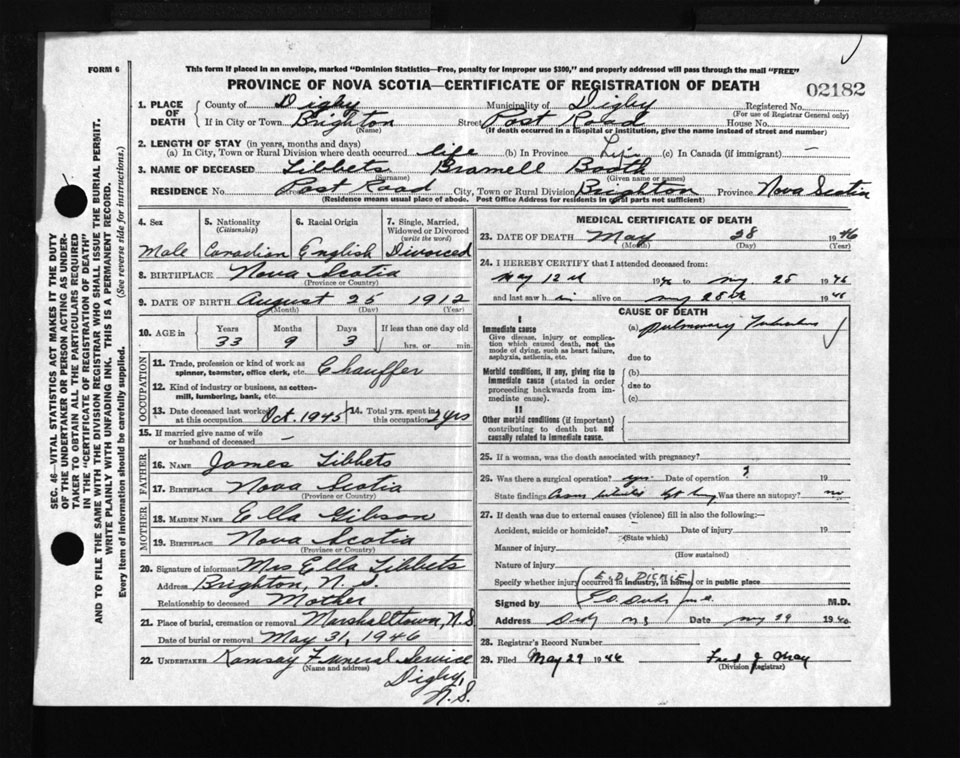 FORM 6
This form if placed in an envelope, marked "Dominion Statistics—Free, penalty for improper use $300," and properly addressed will pass through the mail "FREE"
PROVINCE OF NOVA SCOTIA—CERTIFICATE OF REGISTRATION OF DEATH
02182
1. PLACE OF DEATH
County of Digby Municipality of Digby Registered No.
(For use of Registrar General only)
If in City or Town Brighton Street Post Road House No.
(Name) (If death occurred in a hospital or institution, give the name instead of street and number)
2. LENGTH OF STAY (in years, months and days)
(a) In City, Town or Rural Division where death occurred life (b) In Province Life (c) In Canada (if immigrant) —
3. NAME OF DECEASED Tibbets Bramell Booth
(Surname) (Given name or names)
RESIDENCE No. Post Road City, Town or Rural Division Brighton Province Nova Scotia
(Residence means usual place of abode. Post Office Address for residents in rural parts not sufficient)
4. Sex
Male
5. Nationality
(Citizenship)
Canadian
6. Racial Origin
English
7. Single, Married, Widowed or Divorced
(write the word)
Divorced
8. BIRTHPLACE Nova Scotia
(Province or Country)
9. DATE OF BIRTH August 25 1912
(Month) (Day) (Year)
10. AGE in Years Months Days If less than one day old
33 9 3 hrs. or min.
OCCUPATION
11. Trade, profession or kind of work as
spinner, teamster, office clerk, etc. Chauffer
12. Kind of industry or business, as cotton-
mill, lumbering, bank, etc.
13. Date deceased last worked at this occupation Oct. 1945
14. Total yrs. spent in this occupation yrs
15. If married give name of wife
or husband of deceased —
FATHER
16. NAME James Tibbets
17. BIRTHPLACE Nova Scotia
(Province or Country)
MOTHER
18. MAIDEN NAME Ella Gibson
19. BIRTHPLACE Nova Scotia
(Province or Country)
20. Signature of informant Mrs Ella Tibbets
Address Brighton, N. S.
Relationship to deceased Mother
21. Place of burial, cremation or removal Marshalltown, N.S
Date of burial or removal May 31, 1946
22. UNDERTAKER Ramsay Funeral Service
(Name and address)
Digby,
N.S.
MEDICAL CERTIFICATE OF DEATH
23. DATE OF DEATH May 28 1946
(Month) (Day) (Year)
24. I HEREBY CERTIFY that I attended deceased from:
May 12 1946 to 25 1946
and last saw him alive on 25 1946
CAUSE OF DEATH
I
Immediate cause
Give disease, injury or complica-
tion which caused death, not the
mode of dying, such as heart failure,
asphyxia, asthenia, etc.
(a) Pulmonary Tuberculosis
due to
Morbid conditions, if any, giving rise to
immediate cause (stated in order
proceeding backwards from im-
mediate cause).
(b)
due to
(c)
II
Other morbid conditions (if important)
contributing to death but not
causally related to immediate cause.
25. If a woman, was the death associated with pregnancy?
26. Was there a surgical operation? yes. Date of operation ? 19
State findings Was there an autopsy? no
27. If death was due to external causes (violence) fill in also the following:—
Accident, suicide or homicide? Date of injury 19
(State which)
Manner of injury
(How sustained)
Nature of injury
Specify whether injury occurred in industry, in home, or in public place
E. D. DICKIE
Signed by M.D.
Address Digby N.S Date 29 1946
28. Registrar's Record Number
29. Filed May 29 1946 Fred J. May
(Division Registrar)
SEC. 46—VITAL STATISTICS ACT MAKES IT THE DUTY
OF THE UNDERTAKER OR PERSON ACTING AS UNDER-
TAKER TO OBTAIN ALL THE PARTICULARS REQUIRED
IN THE "CERTIFICATE OF REGISTRATION OF DEATH"
AND TO FILE THE SAME WITH THE DIVISION REGISTRAR WHO SHALL ISSUE THE BURIAL PERMIT.
WRITE PLAINLY WITH UNFADING INK. THIS IS A PERMANENT RECORD.
Every item of information should be carefully supplied. (See reverse side for instructions.)